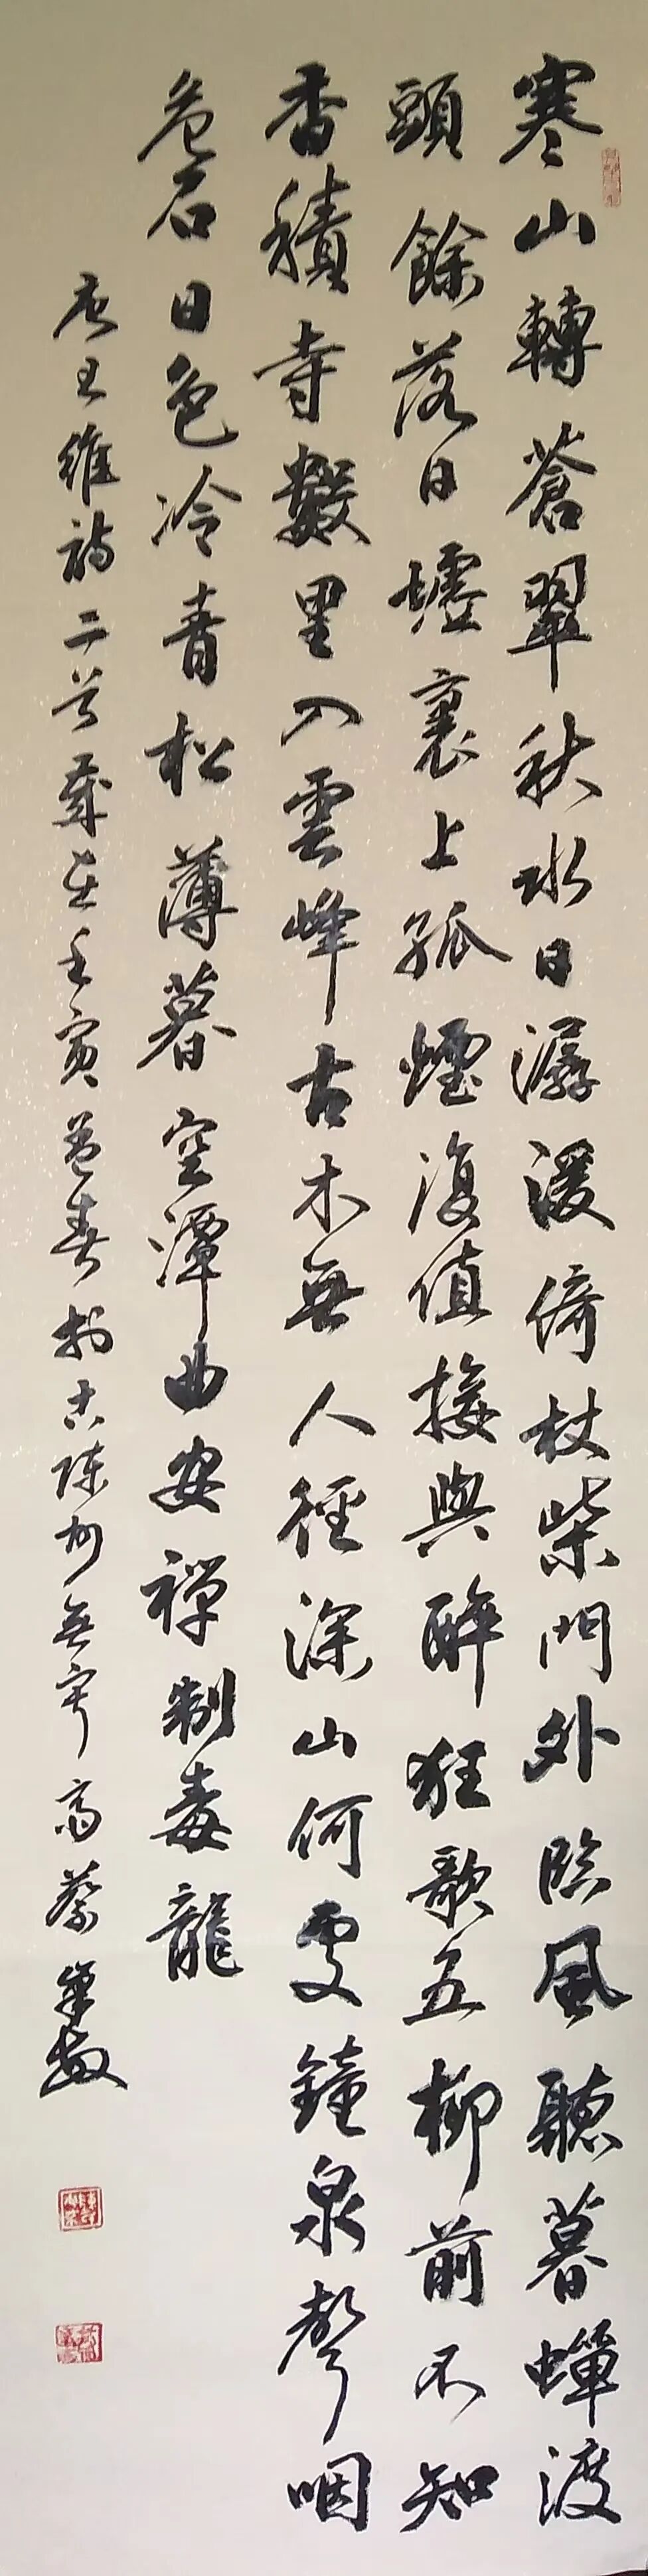 寒山轉蒼翠秋水日潺湲倚杖柴門外臨風聽暮蟬渡
頭餘落日墟裏上孤煙復值接輿醉狂歌五柳前不知
香積寺數里入雲峰古木無人徑深山何處鐘泉聲咽
危石日色冷青松薄暮空潭曲安禪制毒龍
唐王維詩二首歲在壬寅孟春於古陳州